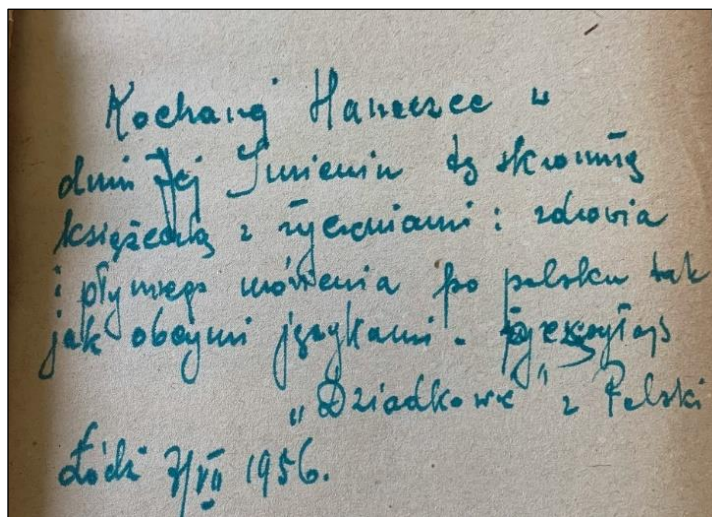 Kochanej Haneczce w
dniu Jej Imienin tę skromną
książeczkę z życzeniami: zdrowia
i płynnego mówienia po polsku tak
jak obcymi językami.
„Dziadkowe" z Polski
Łódź 7/VII 1956.